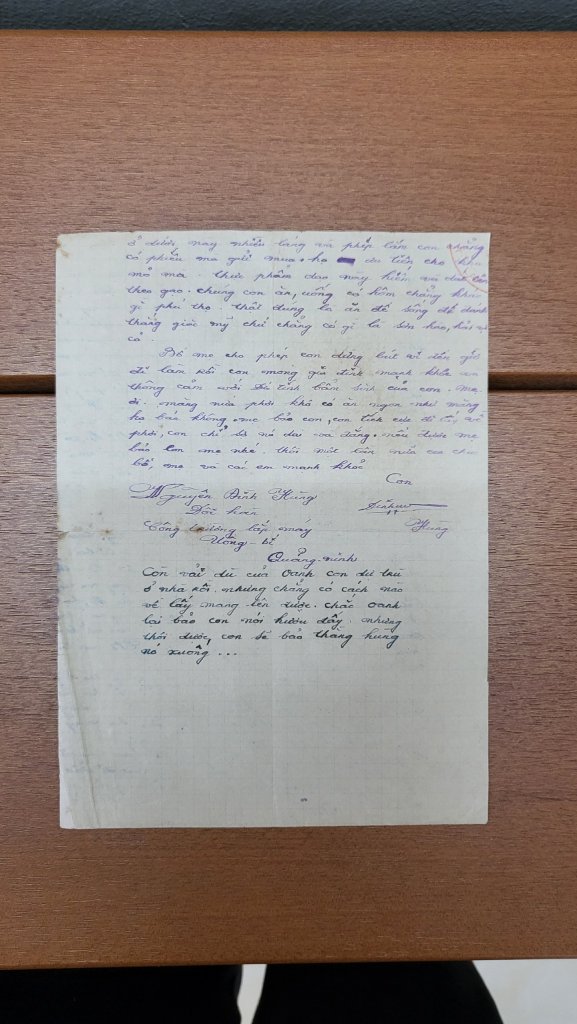 ở dưới này nhiều lắng và phép lắm con chẳng
có phiếu mà gửi mua, họ ưu tiên cho khu
mỏ mà. thực phẩm dạo này hiếm và đắt lên
theo gạo. chúng con ăn, uống có hôm chẳng khác
gì phu thợ. thật đúng là ăn để sống để đánh
thắng giặc mỹ chứ chẳng có gì là sơn hào, hải vị
cả.
Bố mẹ cho phép con dừng bút vì đến giờ
đi làm rồi con mong gia đình mạnh khỏe an
thông cảm với cá tính bẩm sinh của con. mẹ
ơi. măng nứa phơi khô có ăn ngon như măng
họ bán không, mẹ bảo con, con tích cực đi lấy về
phơi, con chỉ sợ nó dai và đắng. nếu được mẹ
bảo con mẹ nhé. thôi một lần nữa con chúc
bố, mẹ và các em mạnh khỏe
Con
Nguyễn Đình Hùng
Đốc hoà
Hùng
Công trường lắp máy
Uông - bí
Quảng-ninh
Còn vải dù của Oanh con dự trữ
ở nhà rồi. nhưng chẳng có cách nào
về lấy mang lên được. Chắc Oanh
lại bảo con nói hươu đấy. nhưng
thôi được, con sẽ bảo thằng hưng
nó xuống ...